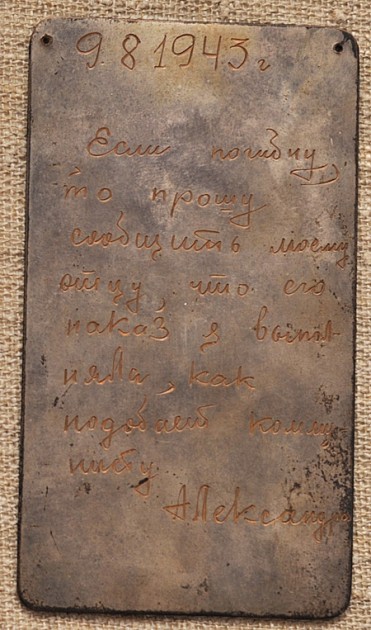 9.8 1943 г
Если погибну,
то прошу
сообщить моему
отцу, что его
наказ я выпол
нял, как
подобает комму
нисту
Александр